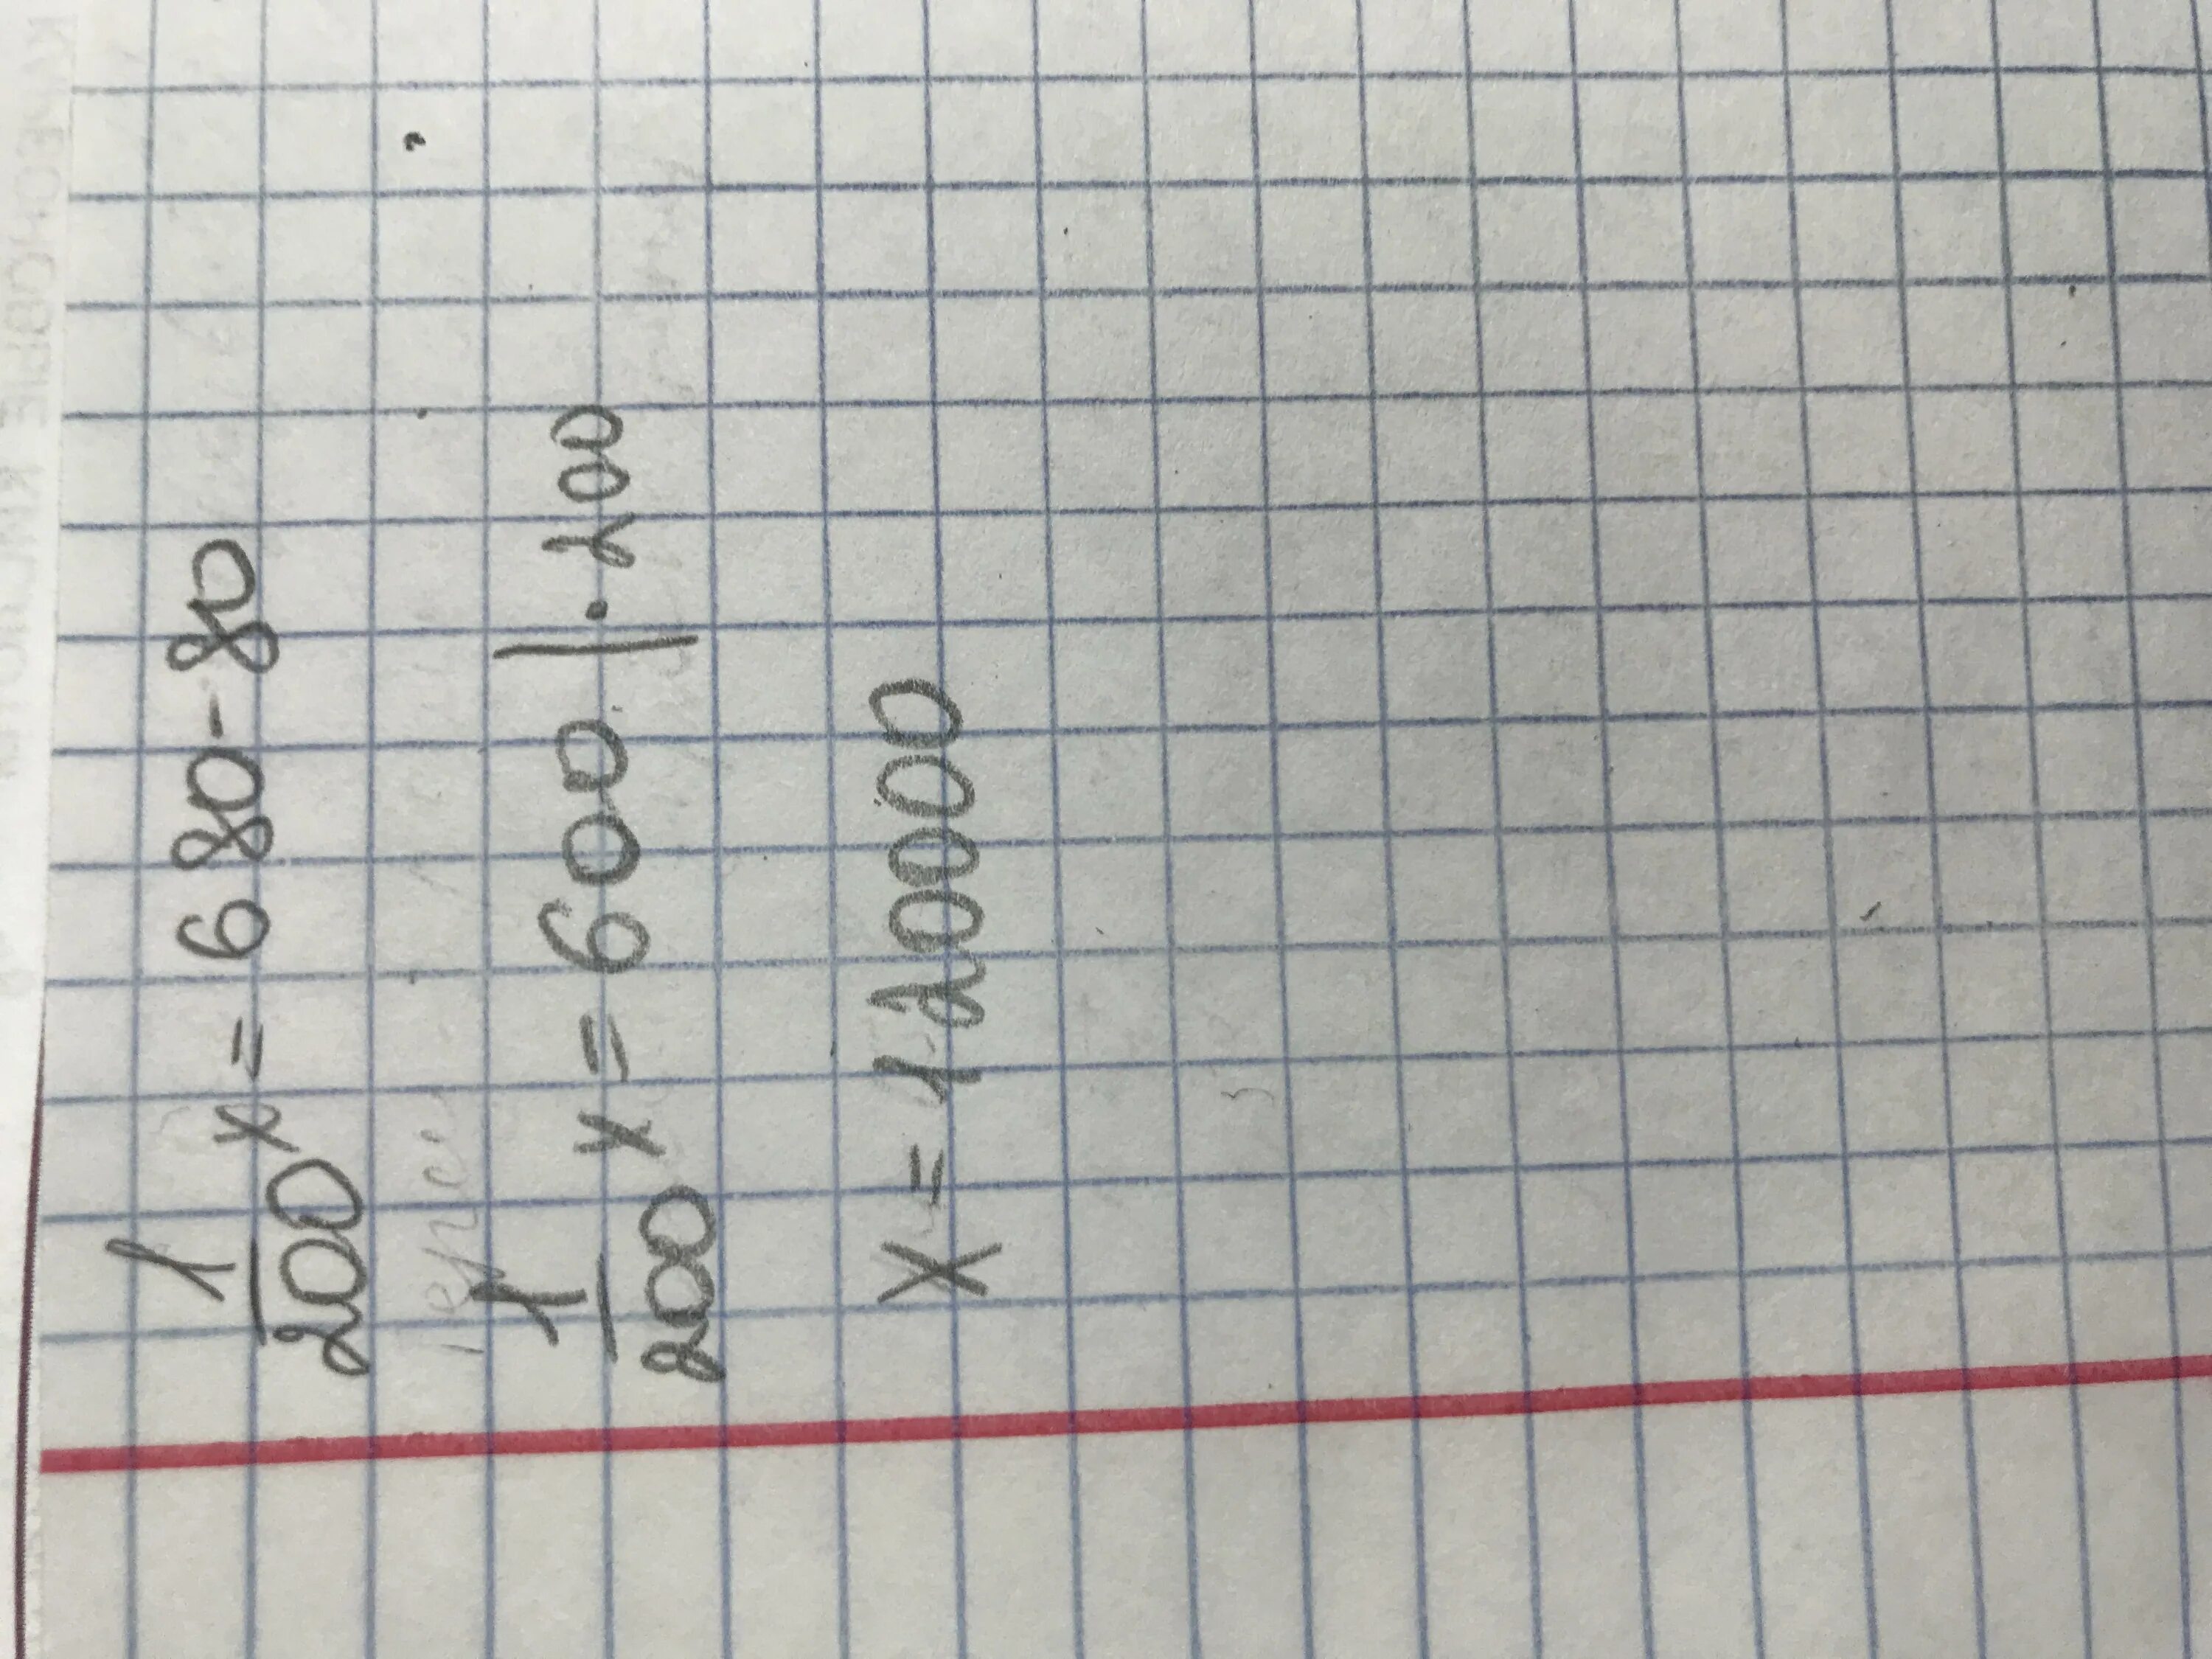 1/200 x = 680-80
1/200 x = 600 | · 200
x = 120000